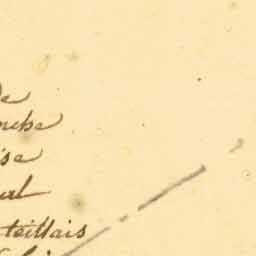 de
nche
ise
al
teillais